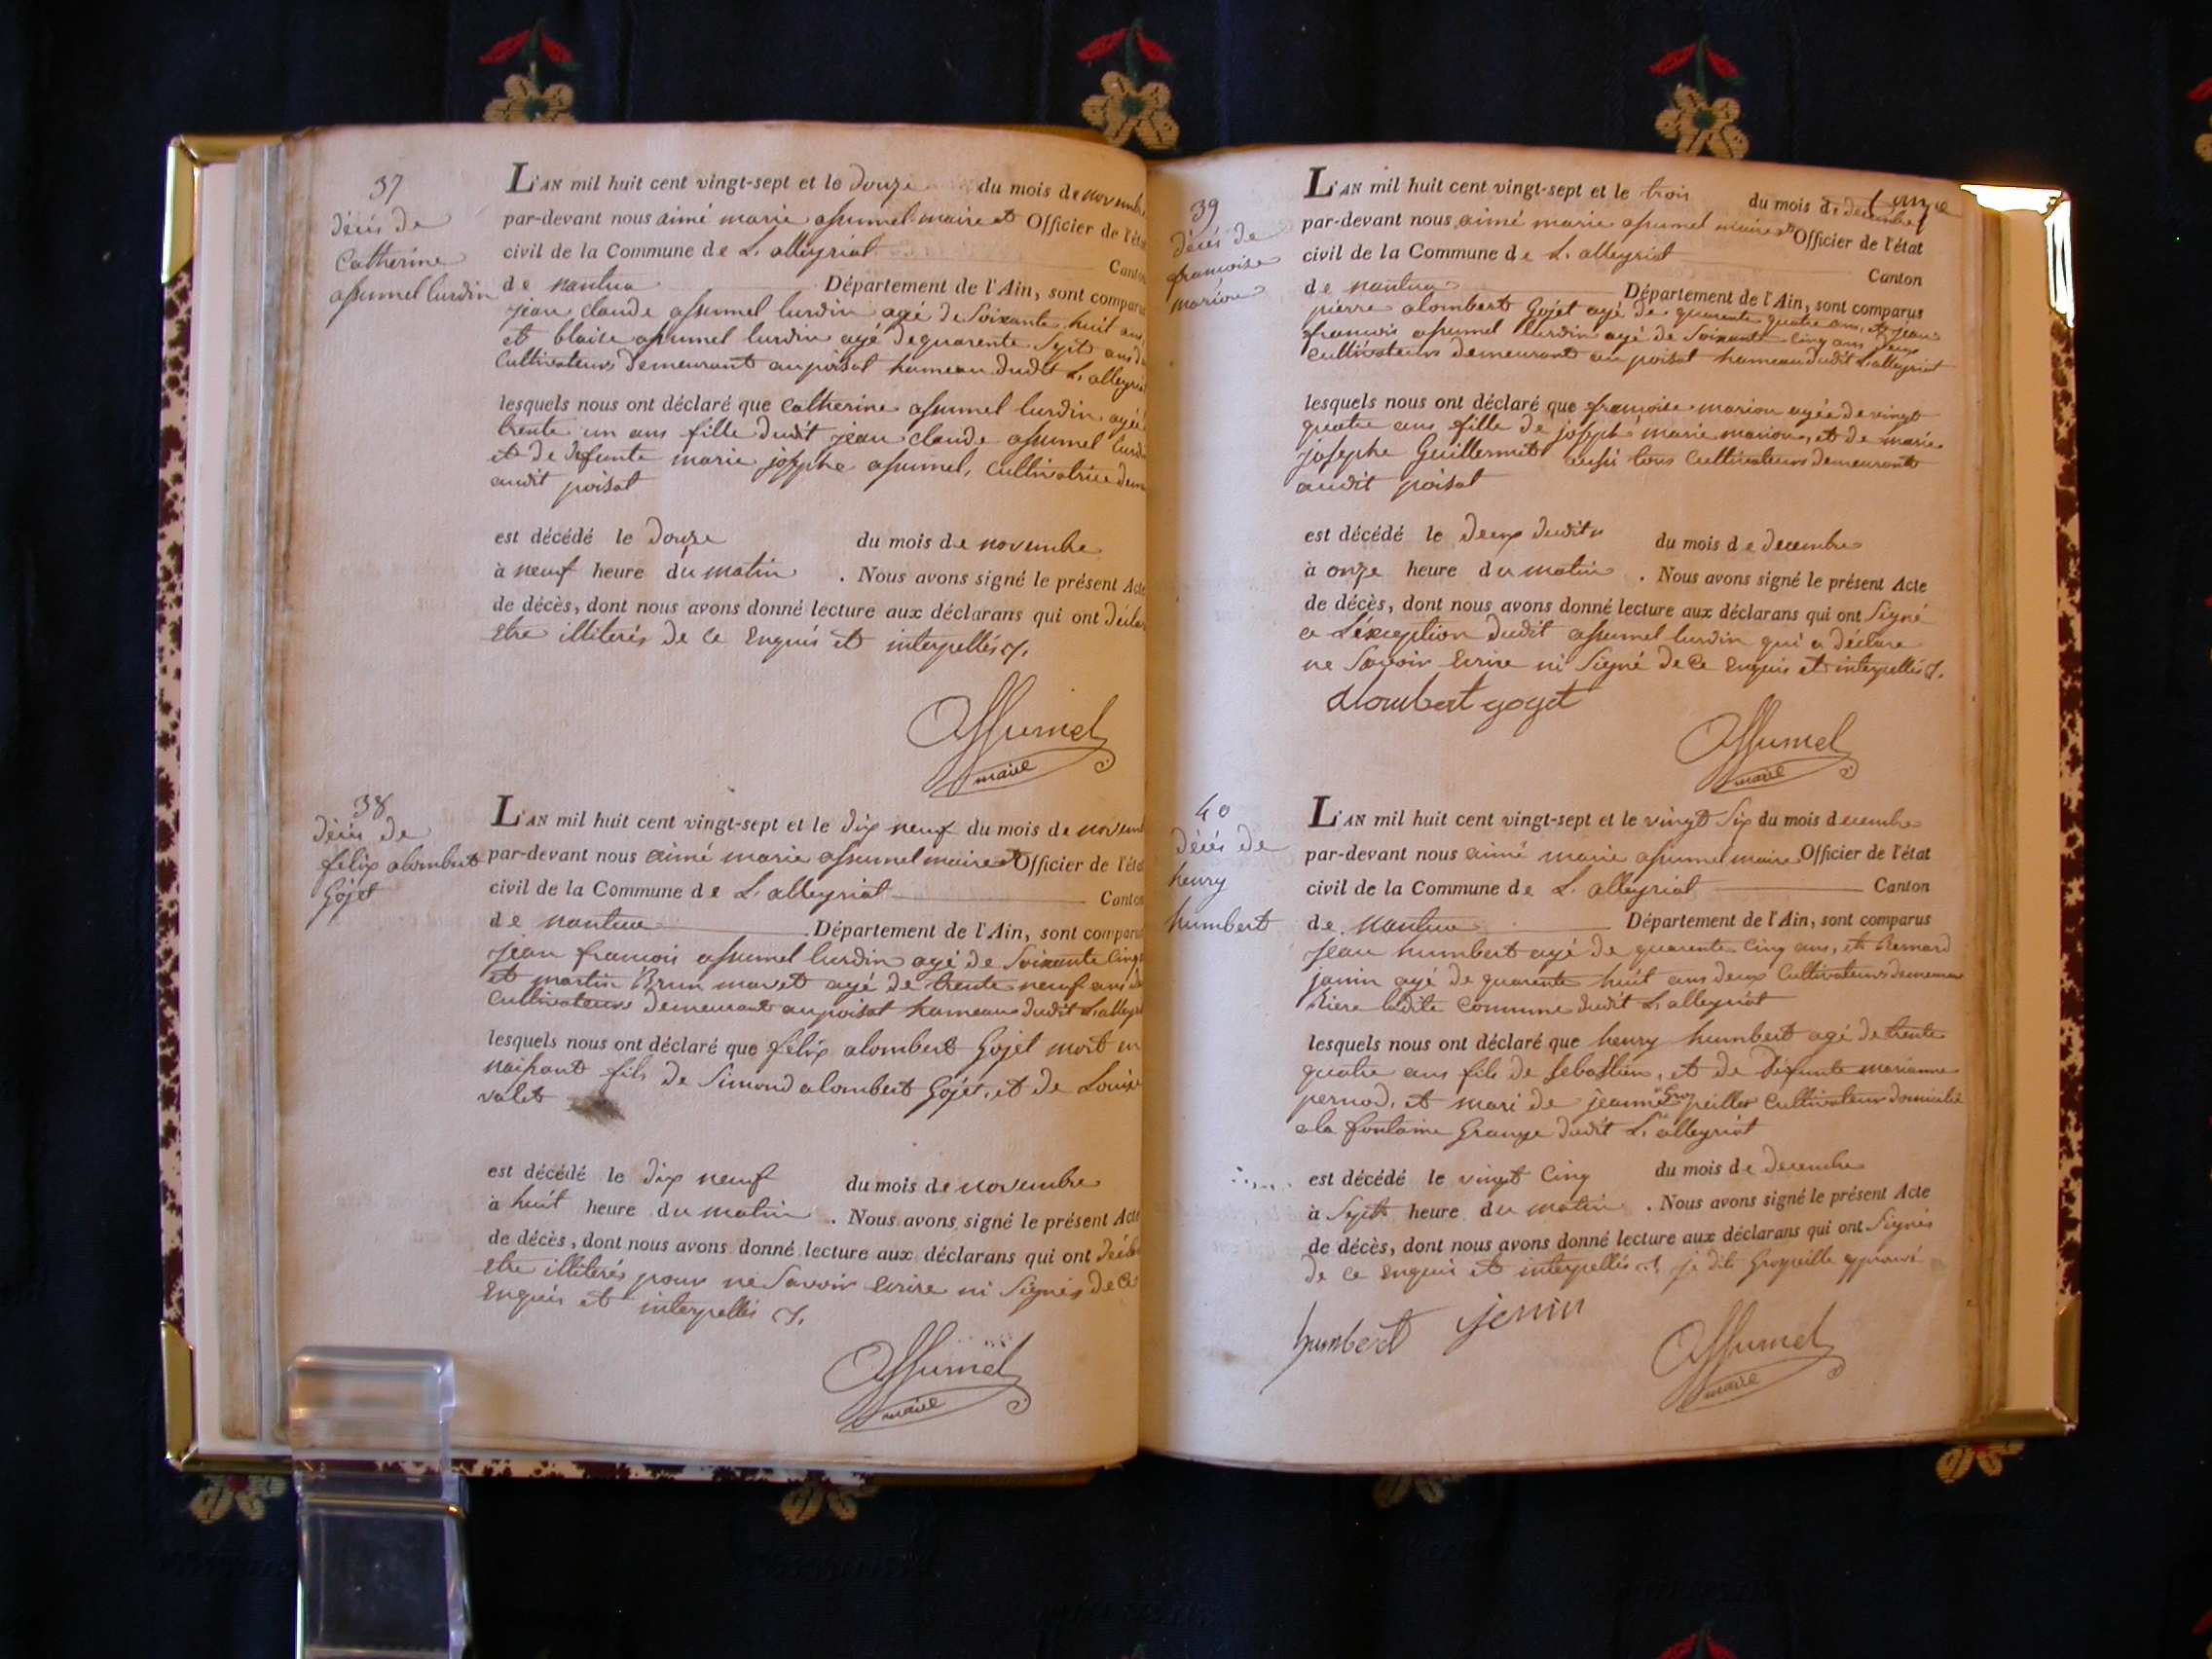 37
décès de
Catherine
assumel lurdin
L'AN mil huit cent vingt-sept et le douze du mois de novembre
par-devant nous aimé marie assumel maire et Officier de l'état
civil de la Commune de L'alleyriat Canton
de nantua Département de l'Ain, sont comparus
jean claude assumel lurdin agé de Soixante huit ans
et blaise assumel lurdin agé de quarente Sept ans
Cultivateurs demeurant au poisat hameau dudit L'alleyriat
lesquels nous ont déclaré que Catherine assumel lurdin agée
trente un ans fille dudit jean claude assumel lurdin
et de defunte marie josephe assumel, Cultivatrice
audit poisat
est décédé le douze du mois de novembre
à neuf heure du matin . Nous avons signé le présent Acte
de décès, dont nous avons donné lecture aux déclarans qui ont
Etre illiterés de ce Enquis et interpellés
Assumel
maire
38
décès de
felix alombert
Gojet
L'AN mil huit cent vingt-sept et le dix neuf du mois de
par-devant nous aimé marie assumel maire et Officier de l'état
civil de la Commune de L'alleyriat Canton
de nantua Département de l'Ain, sont comparus
jean francois assumel lurdin agé de Soixante Cinq
et martin Brun mavet agé de trente neuf ans
Cultivateurs demeurant au poisat hameau dudit
lesquels nous ont déclaré que felix alombert Gojet mort en
naissant fils de Simond alombert Gojet, et de Louise
valet
est décédé le dix neuf du mois de novembre
à huit heure du matin . Nous avons signé le présent Acte
de décès, dont nous avons donné lecture aux déclarans qui ont
Etre illiterés pour ne Savoir Ecrire ni Signés de Ce
Enquis et interpellés
Assumel
maire
39
décès de
francoise
marion
L'AN mil huit cent vingt-sept et le trois du mois de decembre
par-devant nous aimé marie assumel maire et Officier de l'état
civil de la Commune de L'alleyriat Canton
de nantua Département de l'Ain, sont comparus
pierre alombert Gojet agé de quarente quatre ans, et jean
francois assumel lurdin agé de Soixante Cinq ans deux
Cultivateurs demeurant au poisat hameau dudit L'alleyriat
lesquels nous ont déclaré que francoise marion agée de vingt
quatre ans fille de joseph marie marion, et de marie
josephe Guillermet aussi tous Cultivateurs demeurants
audit poisat
est décédé le deux dudit du mois de decembre
à onze heure du matin . Nous avons signé le présent Acte
de décès, dont nous avons donné lecture aux déclarans qui ont Signé
a L'éxception dudit assumel lurdin qui a déclare
ne Savoir Ecrire ni Signé de Ce Enquis et interpellés
alombert gojet
Assumel
maire
40
décès de
henry
humbert
L'AN mil huit cent vingt-sept et le vingt Six du mois decembre
par-devant nous aimé marie assumel maire Officier de l'état
civil de la Commune de L'alleyriat Canton
de nantua Département de l'Ain, sont comparus
jean humbert agé de quarente Cinq ans, et Bernard
janin agé de quarente huit ans deux Cultivateurs
Riere ladite Commune dudit L'alleyriat
lesquels nous ont déclaré que henry humbert agé de trente
quatre ans fils de Sebastien, et de Défunte marianne
pernod, et mari de jeanne Gros peillex Cultivateur domicilié
a la fontaine Grange dudit L'alleyriat
est décédé le vingt Cinq du mois de decembre
à Sept heure du matin . Nous avons signé le présent Acte
de décès, dont nous avons donné lecture aux déclarans qui ont Signés
de ce Enquis et interpellés
humbert jenin
Assumel
maire